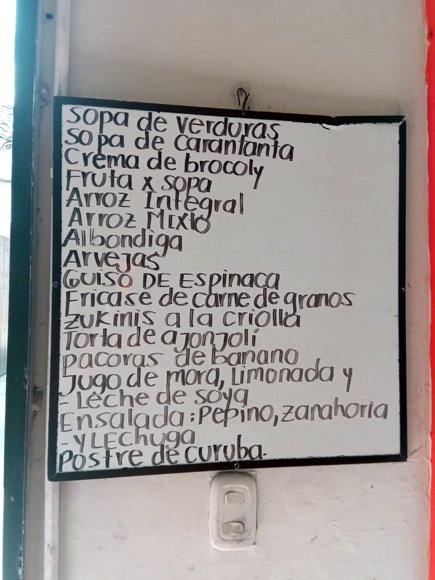 Sopa de verduras
Sopa de carantanta
Crema de brocoly
Fruta x sopa
Arroz Integral
Arroz Mixto
Albondiga
Arvejas
GUISO DE ESpinaca
Fricase de carne de granos
Zukinis a la criolla
Torta de ajonjolí
pacoras de banano
Jugo de mora, Limonada y
- Leche de soya
Ensalada: Pepino, zanahoria
- y LEchuga
Postre de curuba.